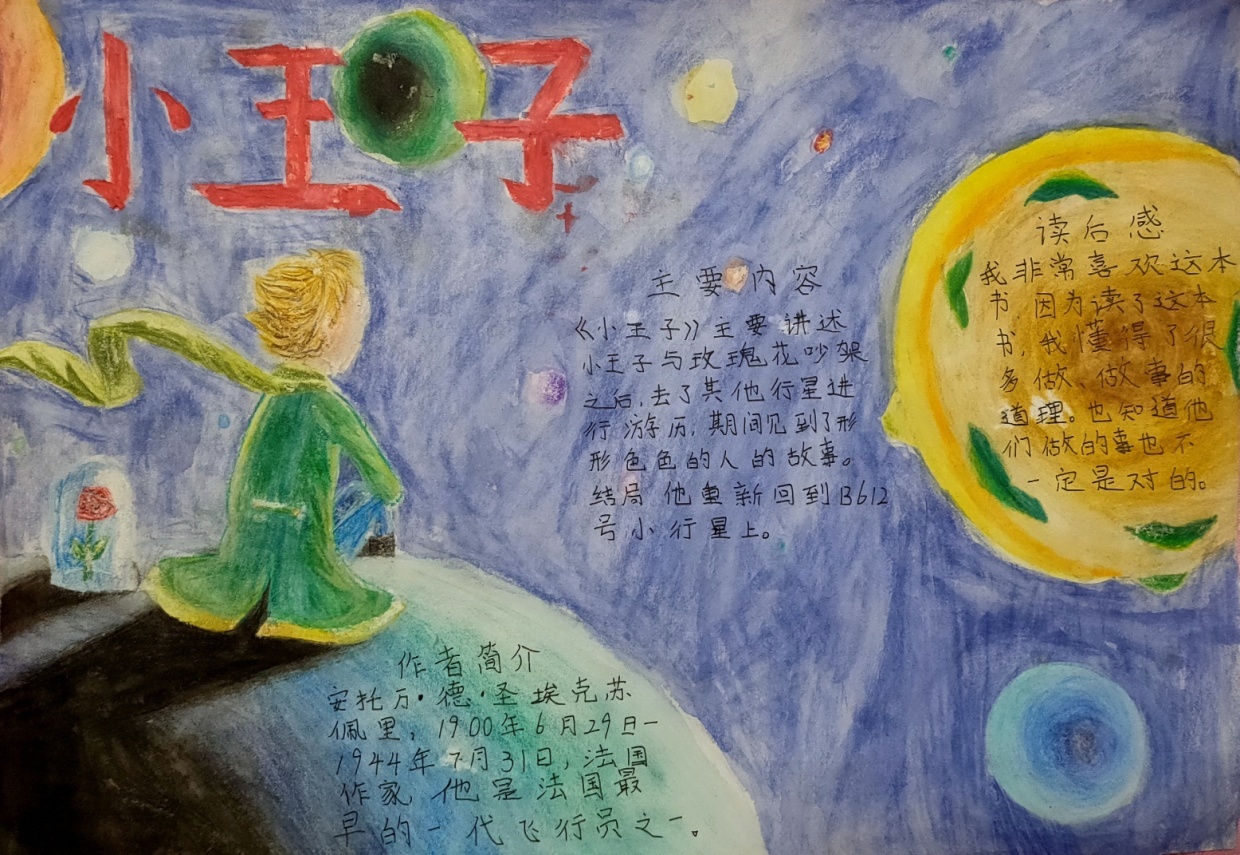 小王子
主要内容
《小王子》主要讲述
小王子与玫瑰花吵架
之后,去了其他行星进
行游历,期间见到了形
形色色的人的故事。
结局他重新回到B612
号小行星上。
读后感
我非常喜欢这本
书,因为读了这本
书,我懂得了很
多做、做事的
道理。也知道他
们做的事也不
一定是对的。
作者简介
安托万·德·圣埃克苏
佩里,1900年6月29日一
1944年7月31日,法国
作家,他是法国最
早的一代飞行员之一。